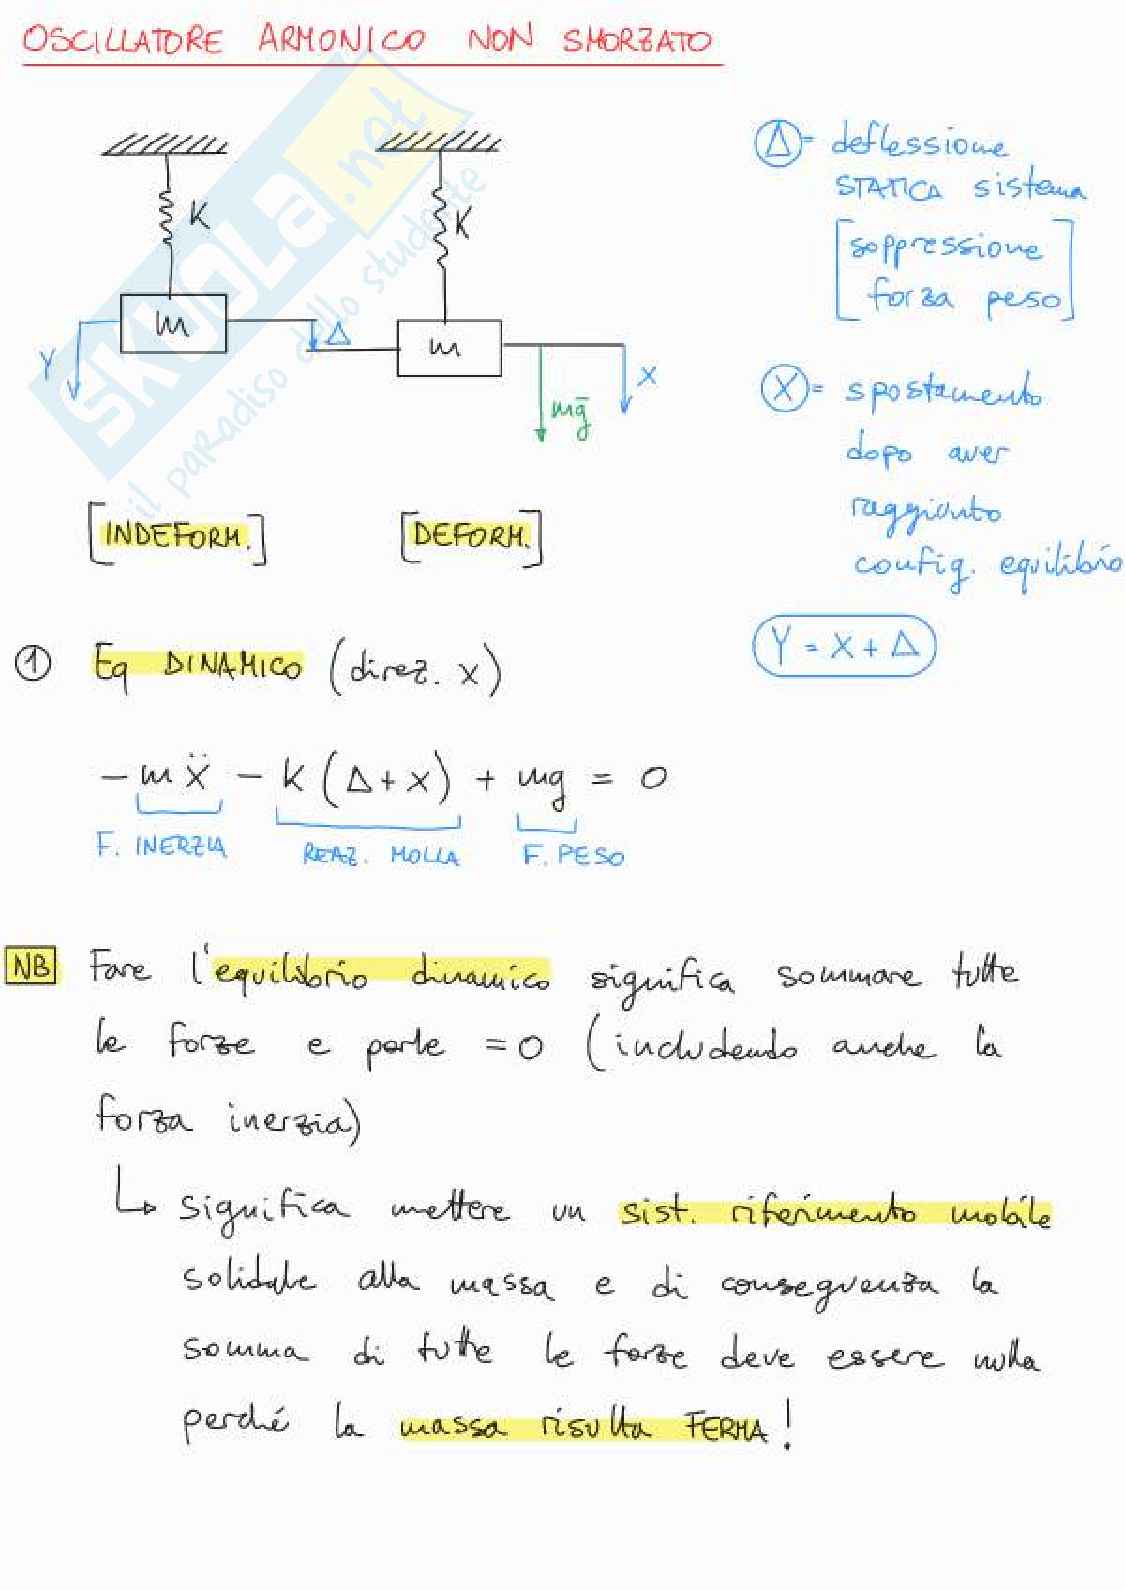 OSCILLATORE ARMONICO NON SMORZATO
SKUOLA.net
il paradiso dello studente
K
K
m
m
Y
Δ
X
mg̅
Δ = deflessione
STATICA sistema
[soppressione
forza peso]
X = spostamento
dopo aver
raggiunto
config. equilibrio
Y = X + Δ
[INDEFORM.]
[DEFORM.]
① Eq DINAMICO (direz. x)
- mẍ - k (Δ + x) + mg = 0
F. INERZIA
REAZ. MOLLA
F. PESO
NB Fare l'equilibrio dinamico significa sommare tutte
le forze e porle = 0 (includendo anche la
forza inerzia)
↳ significa mettere un sist. riferimento mobile
solidale alla massa e di conseguenza la
somma di tutte le forze deve essere nulla
perché la massa risulta FERMA!